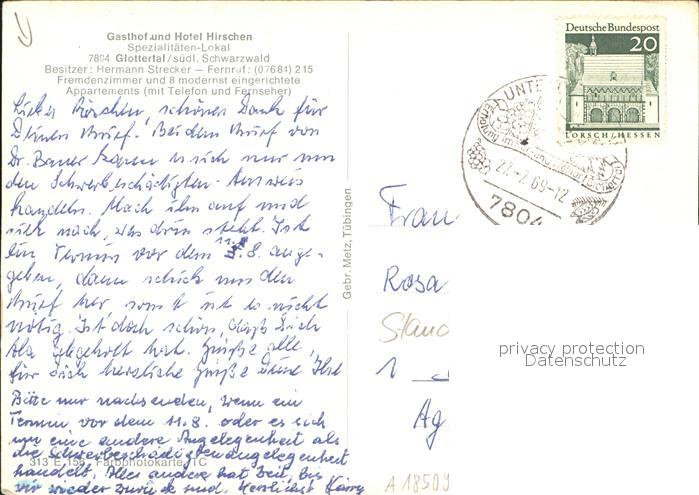 Gasthof und Hotel Hirschen
Spezialitäten-Lokal
7804 Glottertal/südl. Schwarzwald
Besitzer: Hermann Strecker – Fernruf: (07684) 215
Fremdenzimmer und 8 modernst eingerichtete
Appartements (mit Telefon und Fernseher)
schönen Dank für
Deinen Brief. Bei dem Brief von
Dr. Bauer kann es sich nur um
den Schwerbeschädigten-Ausweis
handeln. Mach ihn auf und
sieh nach, was drin steht. Ist
ein Termin vor dem 11.8. ange-
geben, dann schick uns den
Brief her, sonst ist es nicht
nötig. Ist doch schön, daß Dich
abgeholt hat. Grüße alle,
für Dich herzliche Grüße Deine
Bitte nur nachsenden, wenn ein
Termin vor dem 11.8. oder es sich
um eine andere Angelegenheit als
die Schwerbeschädigtenangelegenheit
handelt. Alles andere hat Zeit, bis
wir wieder zurück sind. Herzlichst
313 E 156 Farbphotokarte TC
Gebr. Metz, Tübingen
Deutsche Bundespost
20
LORSCH/HESSEN
UNTE
22.-7.69-12
7804
Frau
Rosa
1
Ag
A 18509
privacy protection
Datenschutz